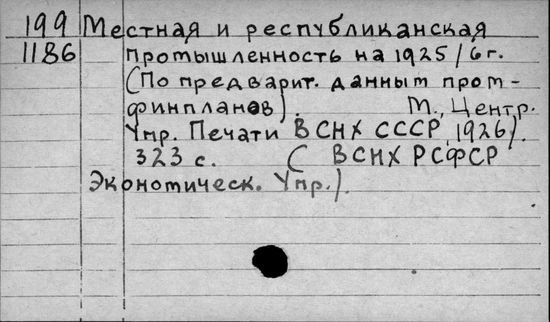 199 Местная и республиканская
1186 промышленность на 1925/6 г.
(По предварит. данным пром-
финпланов). М., Центр.
Упр. Печати ВСНХ СССР, 1926).
323 с. ( ВСНХ РСФСР
Экономическ. Упр.).